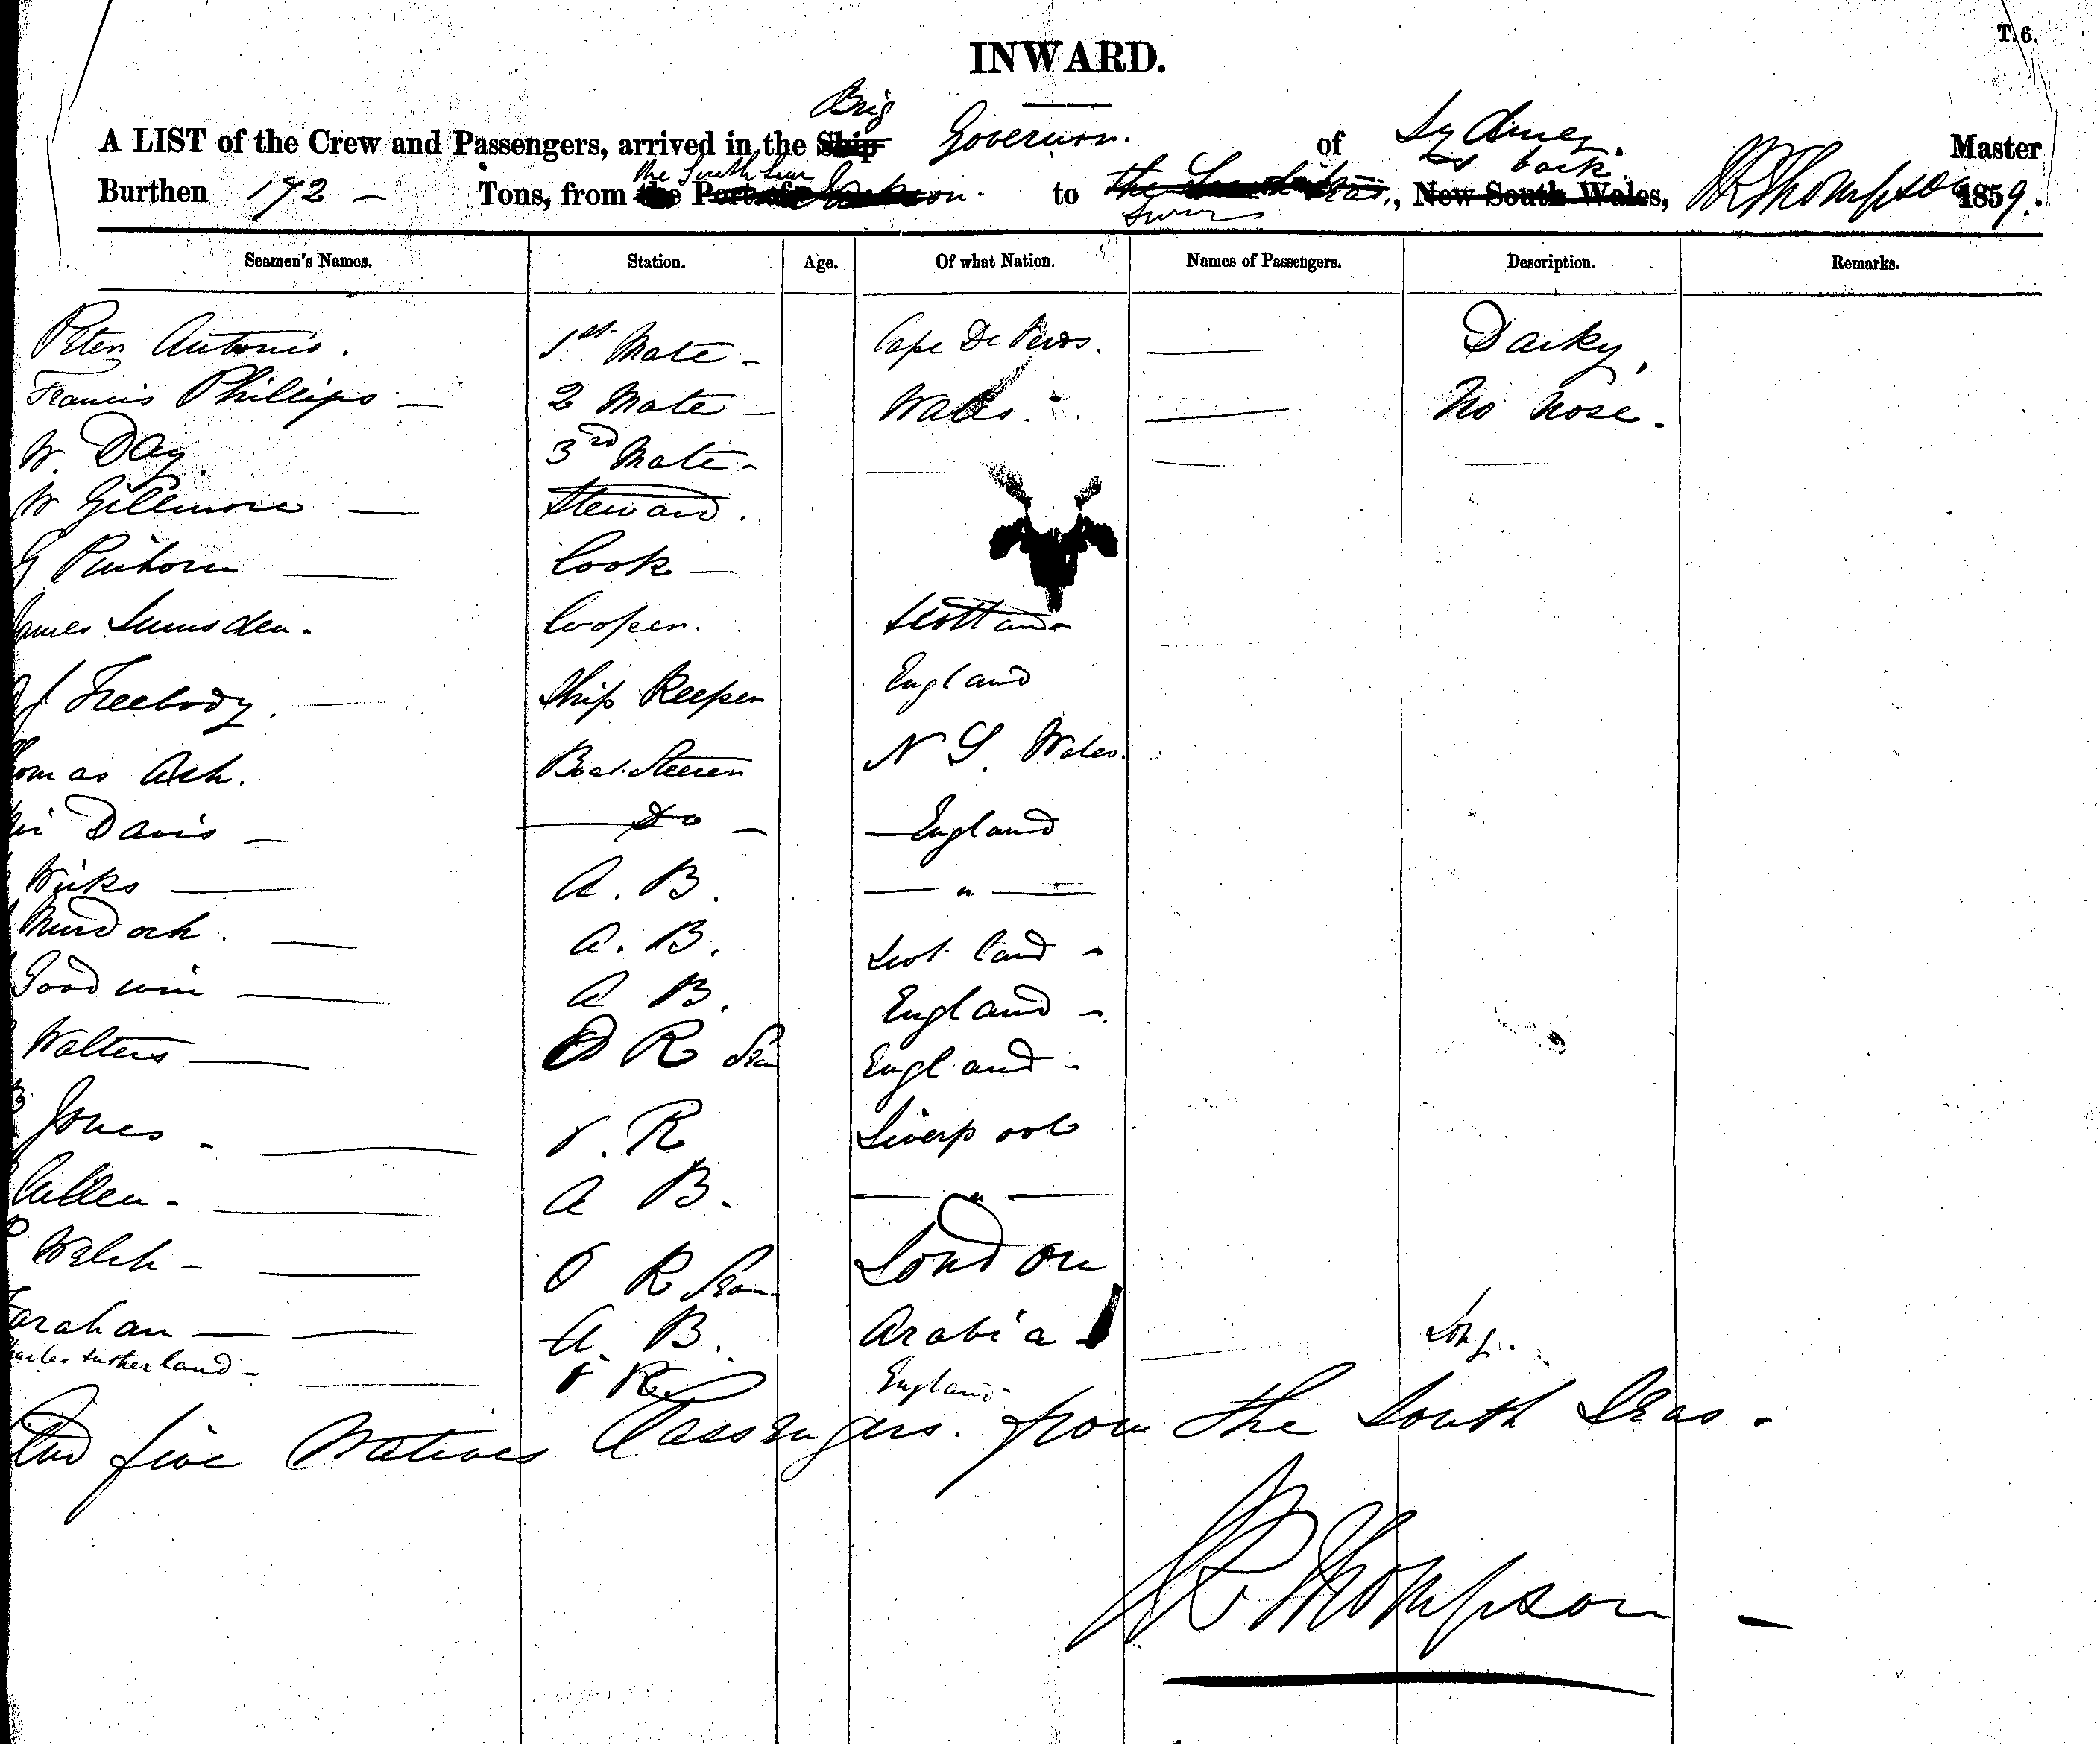 T. 6.
INWARD.
Brig
A LIST of the Crew and Passengers, arrived in the Ship Governor. of Sydney. Master
the South Seas & back
Burthen 192 — Tons, from the Port of Jackson. to the South Seas, New South Wales, Thompson 1859.
Seamen's Names. Station. Age. Of what Nation. Names of Passengers. Description. Remarks.
Peter Antonio. 1st Mate — Cape De Verds. — Darky.
Francis Phillips — 2 Mate — Wales. — No Nose.
W. Day. 3rd Mate — — — —
W Gillmore — Steward.
Pinhorn — Cook —
ames Lumsden. Cooper. Scotland
J Freebody. — Ship Keeper England
homas Ash. Boat Steerer N S. Wales.
Davis — — Do — — England
Wicks — A. B. — " —
Murdoch. — A. B. Scotland -
Goodwin — A B. England -
Walters — O R Sea England -
Jones - — O. R Liverpool
Cullen - — A B. — " —
Welch - — O R Sea London
Farahan — — A. B. Arabia — Long.
harles Sutherland - — O R England
And five Natives Passengers. from the South Seas -
Thompson —